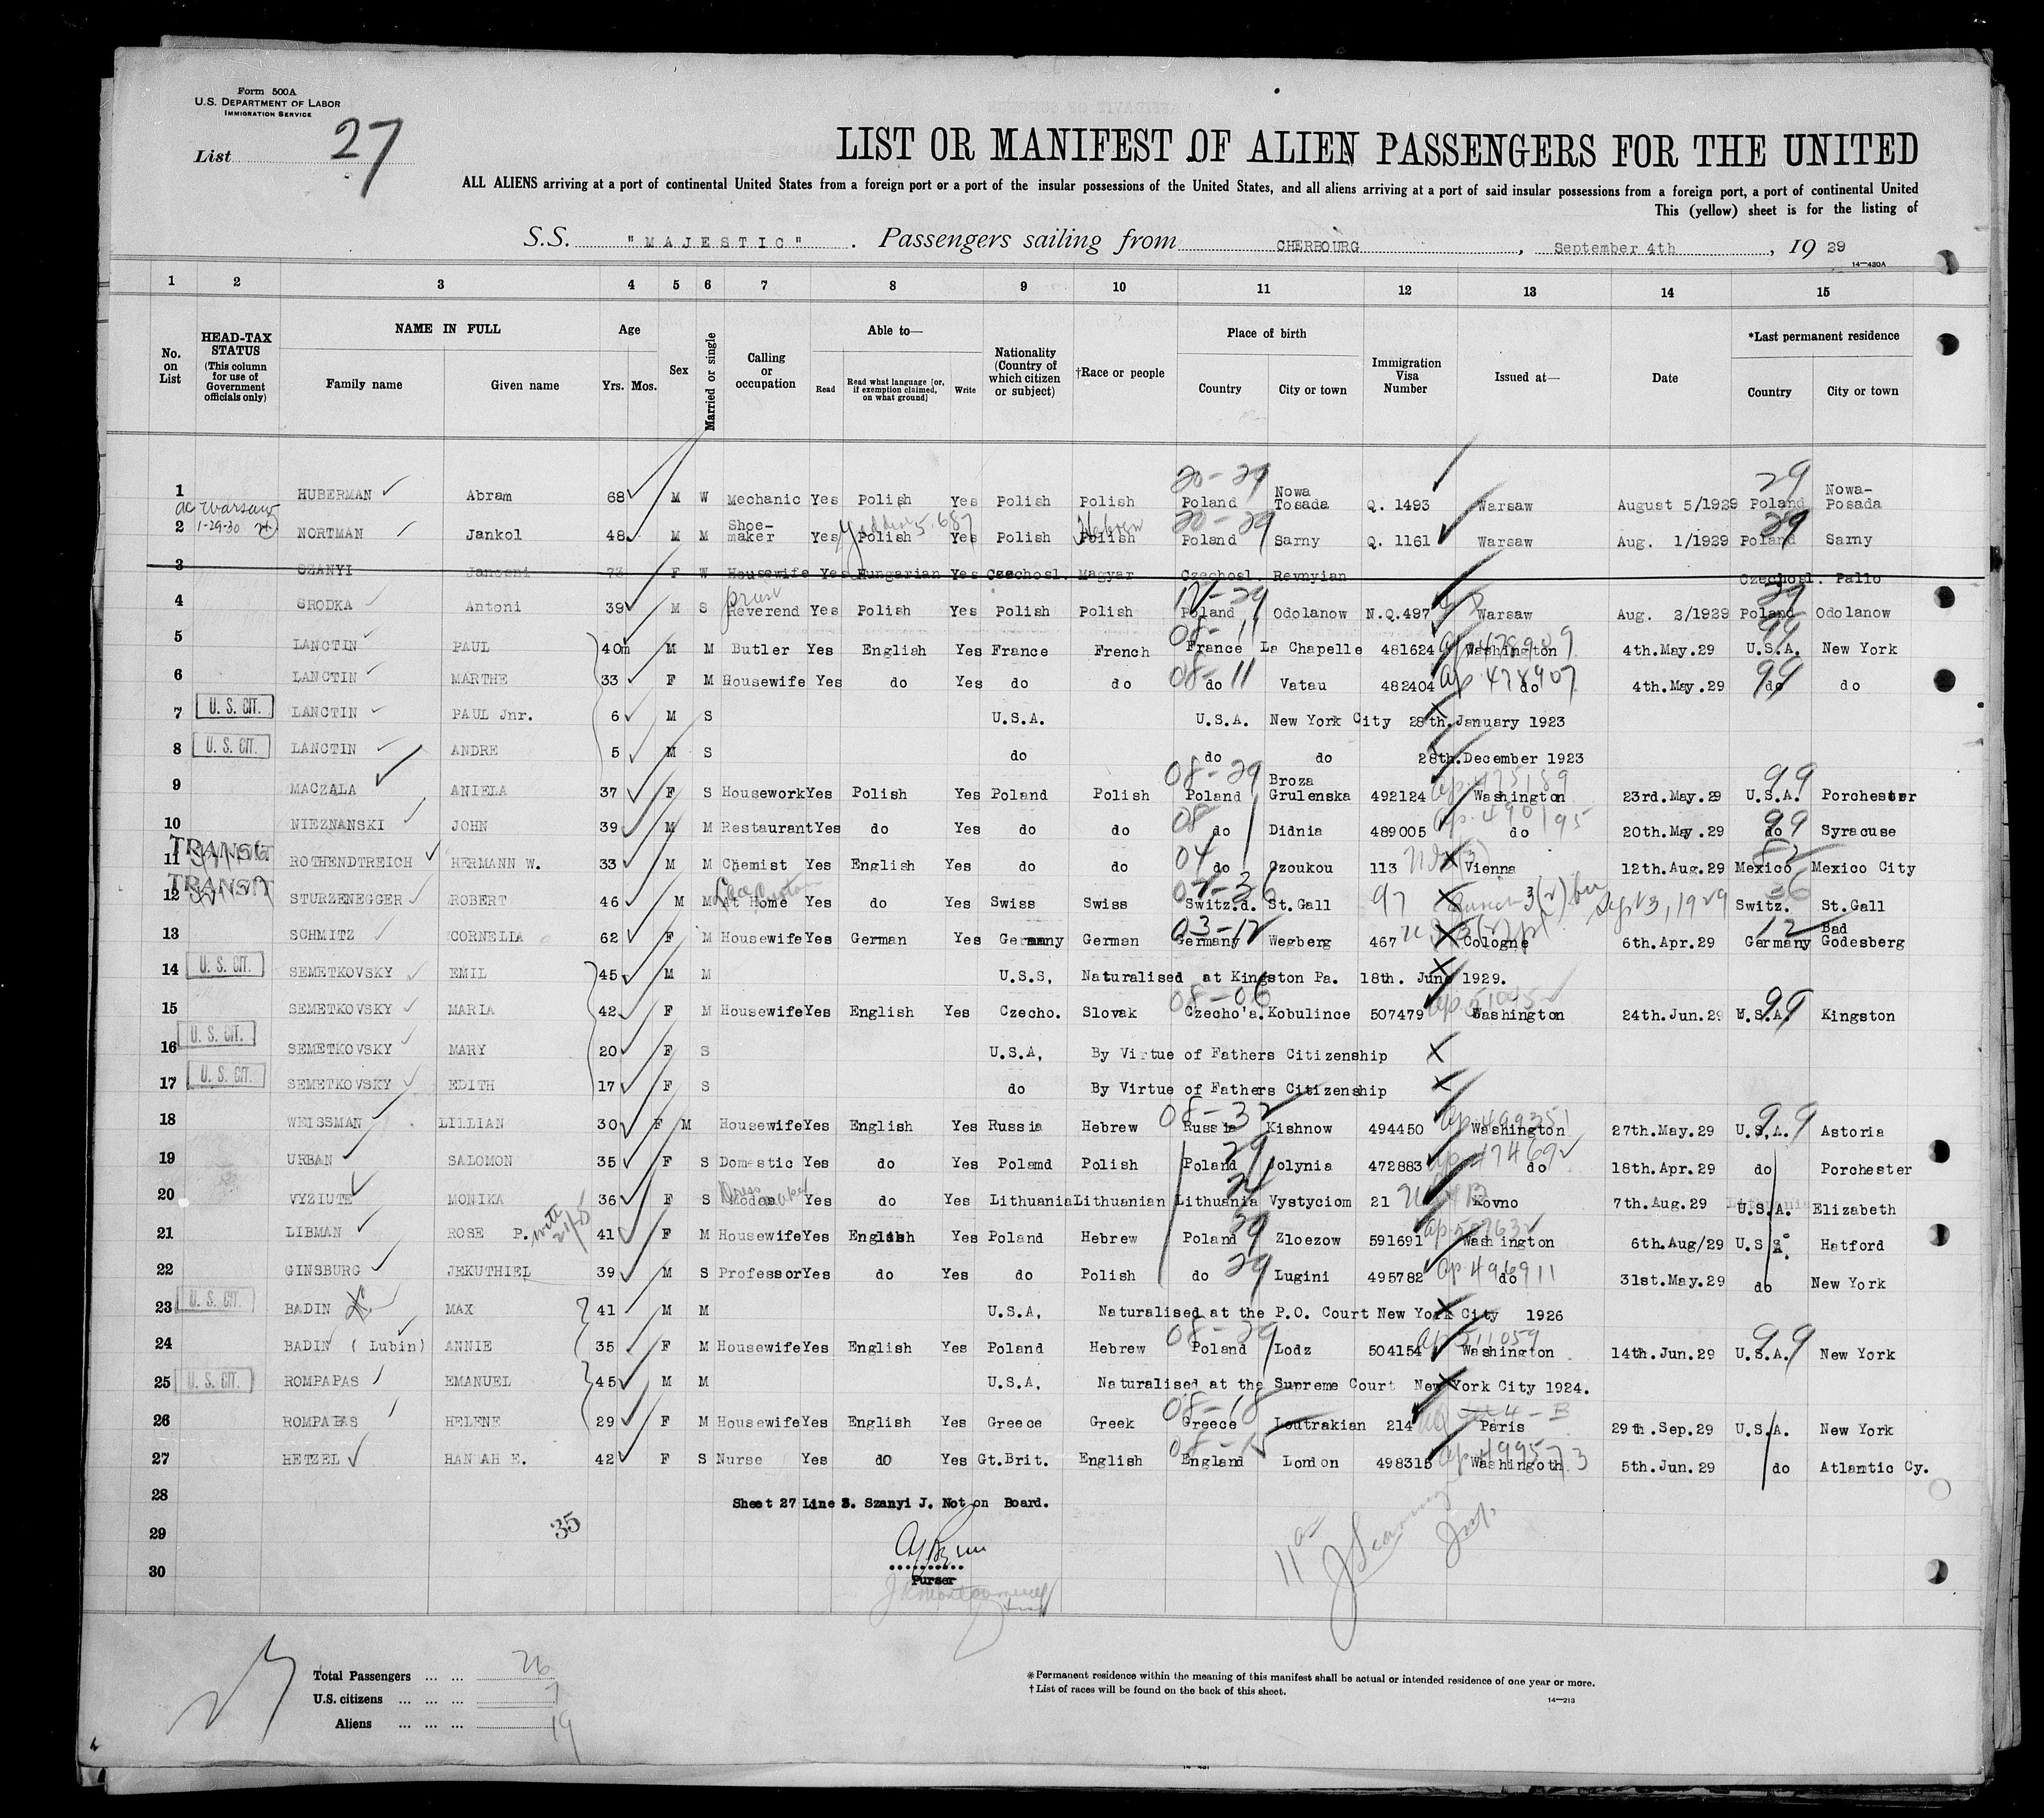 Form 500A
U.S. DEPARTMENT OF LABOR
IMMIGRATION SERVICE
List 27
LIST OR MANIFEST OF ALIEN PASSENGERS FOR THE UNITED
ALL ALIENS arriving at a port of continental United States from a foreign port or a port of the insular possessions of the United States, and all aliens arriving at a port of said insular possessions from a foreign port, a port of continental United
This (yellow) sheet is for the listing of
S.S. "MAJESTIC". Passengers sailing from CHERBOURG, September 4th, 19 29
14—430A
1 2 3 4 5 6 7 8 9 10 11 12 13 14 15
No. on List
HEAD-TAX STATUS (This column for use of Government officials only)
NAME IN FULL
Family name Given name
Age
Yrs. Mos.
Sex
Married or single
Calling or occupation
Able to—
Read Read what language [or, if exemption claimed, on what ground] Write
Nationality (Country of which citizen or subject)
†Race or people
Place of birth
Country City or town
Immigration Visa Number
Issued at—
Date
*Last permanent residence
Country City or town
1 HUBERMAN Abram 68 M W Mechanic Yes Polish Yes Polish Polish 20-29 Poland Nowa Tosada Q. 1493 Warsaw August 5/1929 29 Poland Nowa-Posada
ac Warsaw
2 1-29-30 NORTMAN Jankol 48 M M Shoe-maker Yes Polish Yes Polish Polish Hebrew 20-29 Poland Sarny Q. 1161 Warsaw Aug. 1/1929 29 Poland Sarny
3 SZANYI 73 F W Housewife Yes Hungarian Yes Czechosl. Magyar Czechosl. Revnyian Czechosl. Pallo
4 SRODKA Antoni 39 M S priest Reverend Yes Polish Yes Polish Polish 12-29 Poland Odolanow N.Q.497 Warsaw Aug. 2/1929 29 Poland Odolanow
5 LANCTIN PAUL 40m M M Butler Yes English Yes France French 08-11 France La Chapelle 481624 ap 478909 Washington 4th.May.29 99 U.S.A. New York
6 LANCTIN MARTHE 33 F M Housewife Yes do Yes do do 08-11 do Vatau 482404 ap. 478907 do 4th.May.29 99 do do
7 U. S. CIT. LANCTIN PAUL Jnr. 6 M S U.S.A. U.S.A. New York City 28th.January 1923
8 U. S. CIT. LANCTIN ANDRE 5 M S do do do 28th.December 1923
9 MACZALA ANIELA 37 F S Housework Yes Polish Yes Poland Polish 08-29 Poland Broza Grulenska 492124 ap. 475189 Washington 23rd.May.29 99 U.S.A. Porchester
10 NIEZNANSKI JOHN 39 M M Restaurant Yes do Yes do do 08 do Didnia 489005 ap. 490195 do 20th.May.29 99 do Syracuse
TRANSIT
11 ROTHENDTREICH HERMANN W. 33 M M Chemist Yes English Yes do do 04 do Ozoukou 113 Vienna 12th.Aug.29 Mexico Mexico City
TRANSIT
12 STURZENEGGER ROBERT 46 M M At Home Yes do Yes Swiss Swiss Switz.d. St.Gall 97 Sept 3, 1929 36 Switz. St.Gall
13 SCHMITZ CORNELIA 62 F M Housewife Yes German Yes Germany German 03-12 Germany Wegberg 467 Cologne 6th.Apr.29 12 Germany Bad Godesberg
14 U. S. CIT. SEMETKOVSKY EMIL 45 M M U.S.S, Naturalised at Kingston Pa. 18th. June 1929.
15 SEMETKOVSKY MARIA 42 F M Housewife Yes English Yes Czecho. Slovak 08-06 Czecho'a. Kobulince 507479 Washington 24th.Jun.29 99 U.S.A. Kingston
16 U. S. CIT. SEMETKOVSKY MARY 20 F S U.S.A, By Virtue of Fathers Citizenship
17 U. S. CIT. SEMETKOVSKY EDITH 17 F S do By Virtue of Fathers Citizenship
18 WEISSMAN LILLIAN 30 F M Housewife Yes English Yes Russia Hebrew 08-32 Russia Kishnow 494450 ap. 499351 Washington 27th.May.29 99 U.S.A. Astoria
19 URBAN SALOMON 35 F S Domestic Yes do Yes Poland Polish 29 Poland Jolynia 472883 do 18th.Apr.29 do Porchester
20 VYZIUTE MONIKA 36 F S Dressmaker Yes do Yes Lithuania Lithuanian Lithuania Vystyciom 21 Kovno 7th.Aug.29 U.S.A. Elizabeth
21 LIBMAN ROSE P. 41 F M Housewife Yes English Yes Poland Hebrew 29 Poland Zloezow 591691 Washington 6th.Aug/29 U.S.A. Hatford
22 GINSBURG JEKUTHIEL 39 M S Professor Yes do Yes do Polish 29 do Lugini 495782 ap. 496911 do 31st.May.29 do New York
23 U. S. CIT. BADIN MAX 41 M M U.S.A, Naturalised at the P.O. Court New York City 1926
24 BADIN (Lubin) ANNIE 35 F M Housewife Yes English Yes Poland Hebrew 08-29 Poland Lodz 504154 ap. 511059 Washington 14th.Jun.29 99 U.S.A. New York
25 U. S. CIT. ROMPAPAS EMANUEL 45 M M U.S.A, Naturalised at the Supreme Court New York City 1924.
26 ROMPAPAS HELENE 29 F M Housewife Yes English Yes Greece Greek 08-18 Greece Loutrakian 214 Paris 29th.Sep.29 U.S.A. New York
27 HETZEL HANNAH E. 42 F S Nurse Yes do Yes Gt.Brit. English England London 498315 ap. 499573 Washingoth 5th.Jun.29 do Atlantic Cy.
28 Sheet 27 Line 3. Szanyi J. Not on Board.
29 35
30
Purser
11 a
Insp.
Total Passengers ... ... 26
U.S. citizens ... ... ... 7
Aliens ... ... ... 19
27
*Permanent residence within the meaning of this manifest shall be actual or intended residence of one year or more.
†List of races will be found on the back of this sheet.
14—213